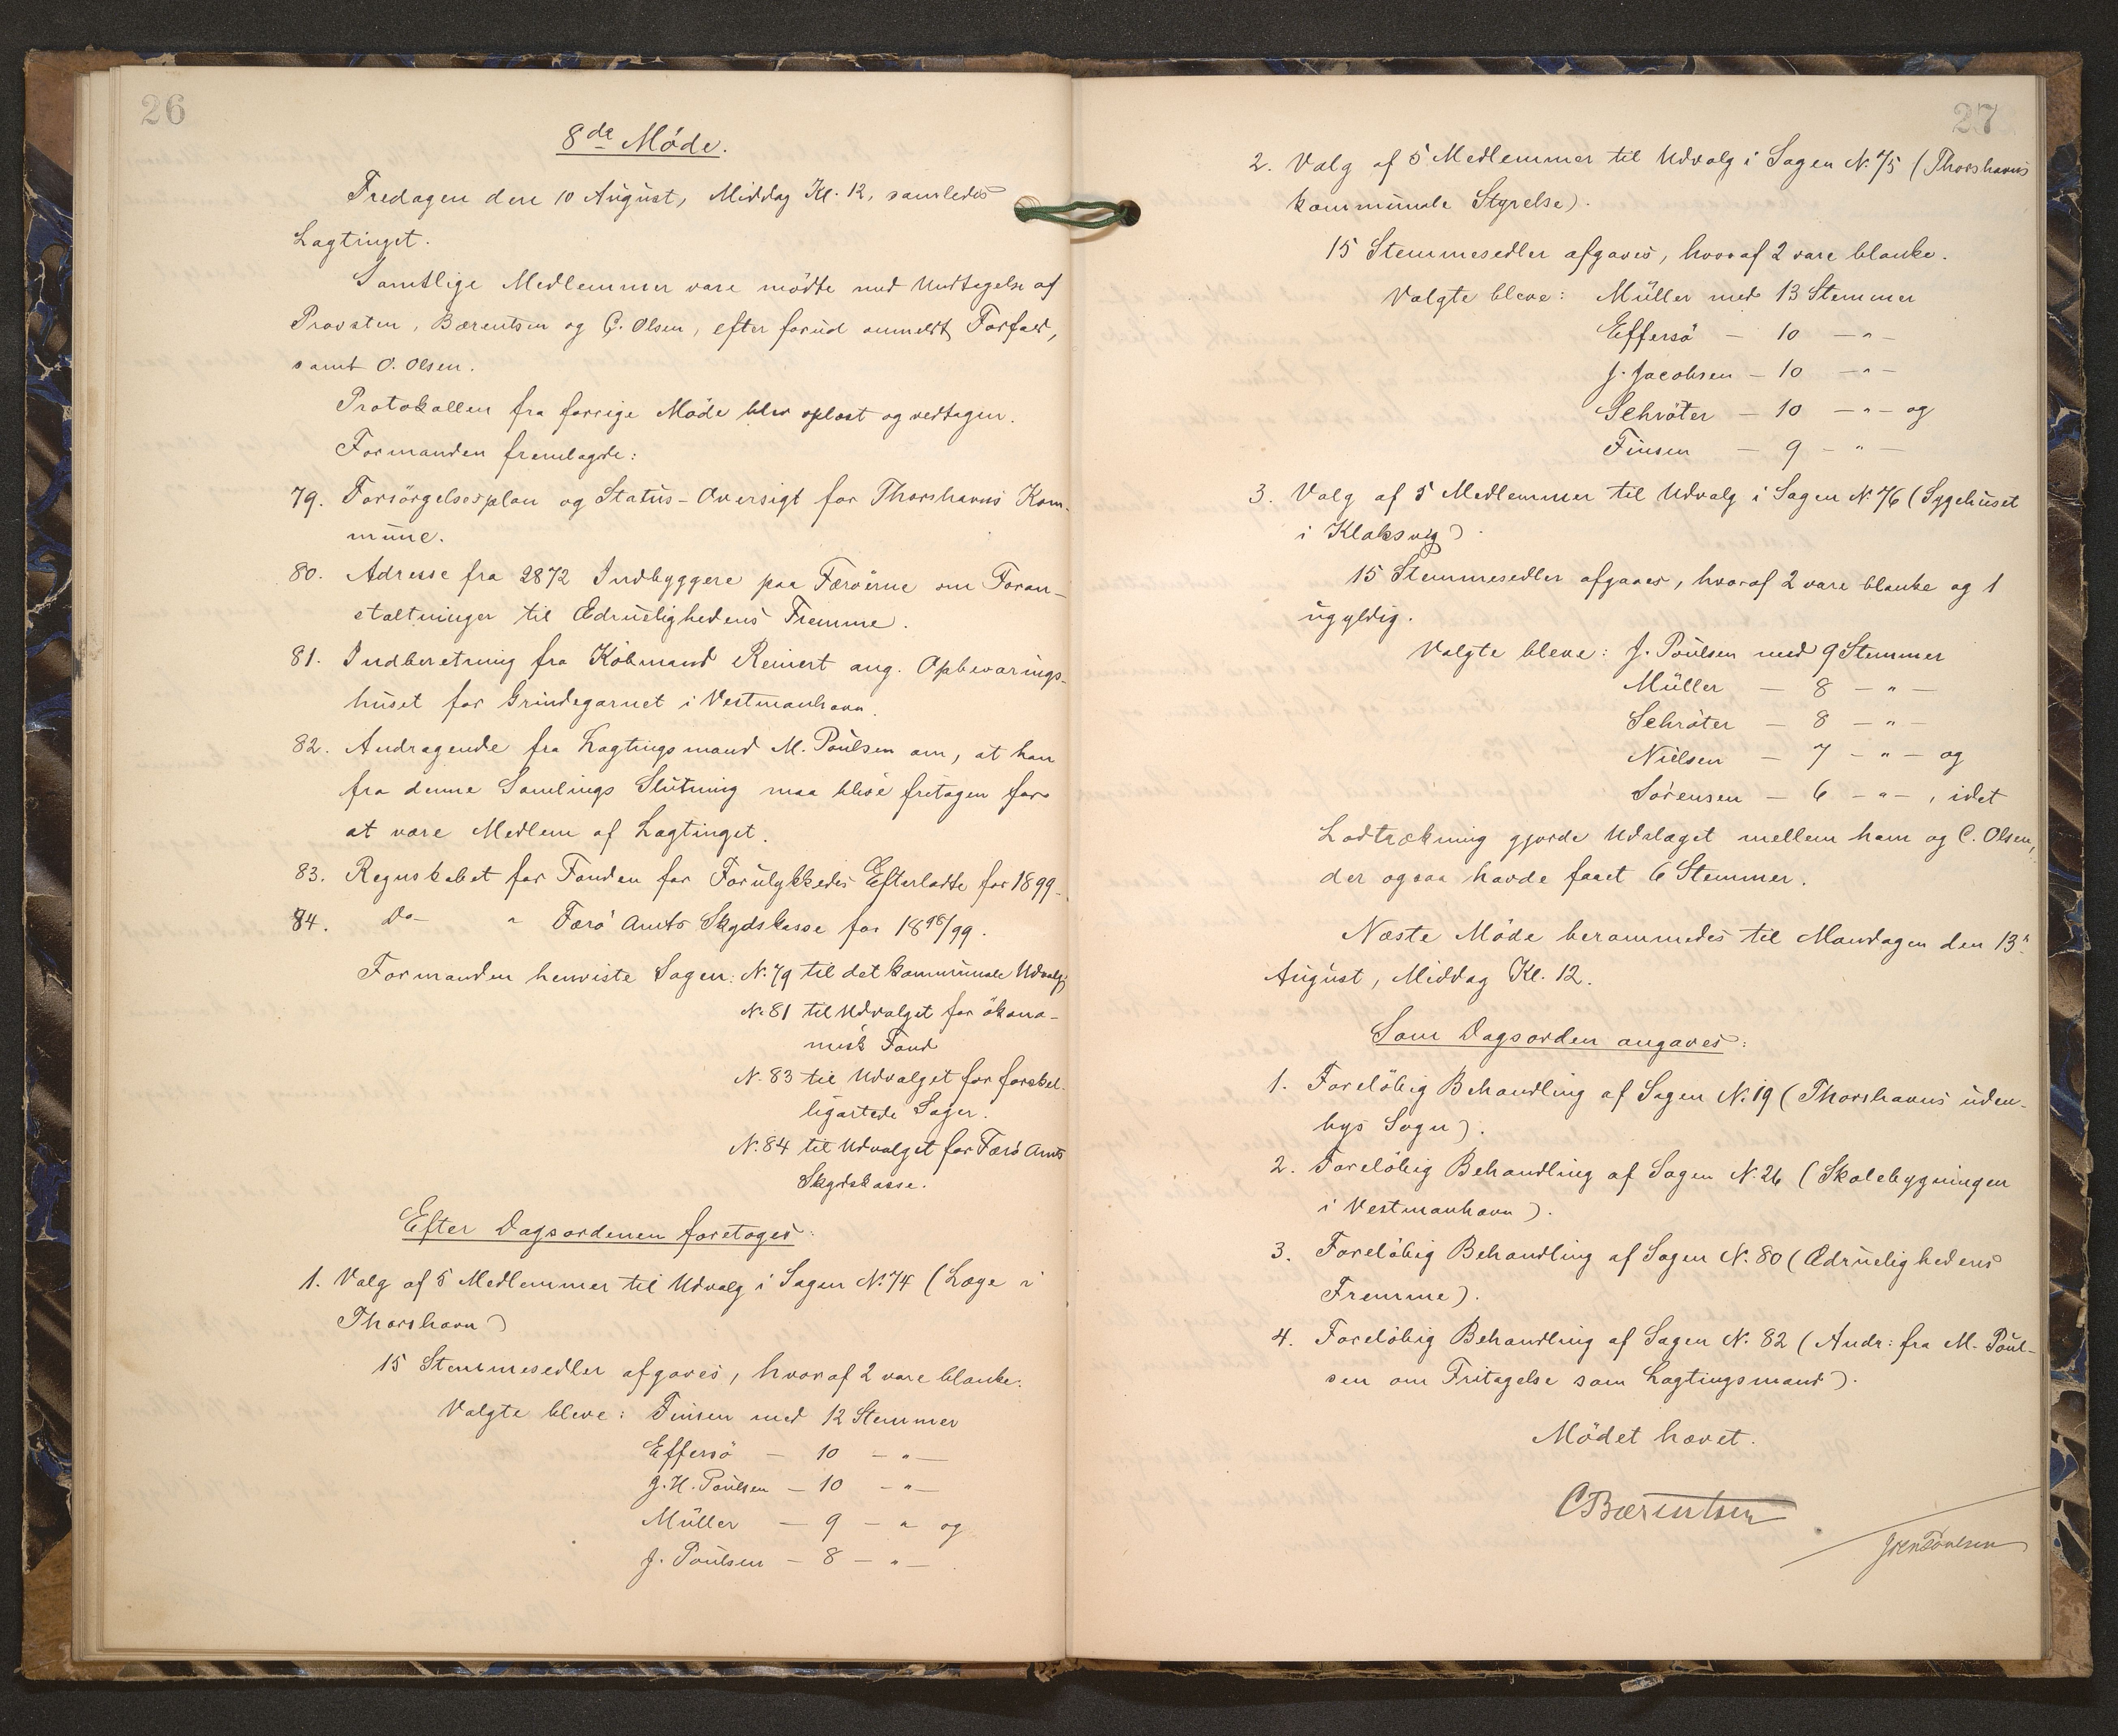 26
8de Møde.
Fredagen den 10 August, Middag Kl. 12, samledes
Lagtinget.
Samtlige Medlemmer vare mødte med Undtagelse af
Provsten, Bærentsen og C. Olsen, efter forud anmeldt Forfald,
samt O. Olsen.
Protokollen fra forrige Møde blev oplæst og vedtagen.
Formanden fremlagde:
79. Forsörgelsesplan og Status-Oversigt for Thorshavns Kom-
mune.
80. Adresse fra 2872 Indbyggere paa Færøerne om Foran-
staltninger til Ædruelighedens Fremme.
81. Indberetning fra Købmand Reinert ang. Opbevarings-
huset for Grindegarnet i Vestmanhavn.
82. Andragende fra Lagtingsmand M. Poulsen om, at han
fra denne Samlings Slutning maa blive fritagen for
at være Medlem af Lagtinget.
83. Regnskabet for Fonden for Forulykkedes Efterladte for 1899.
84. Do - " Færø Amts Skydskasse for 1898/99.
Formanden henviste Sagen: N. 79 til det kommunale Udvalg,
N. 81 til Udvalget for økono-
misk Fond
N. 83 til Udvalget for forskel-
ligartede Sager.
N. 84 til Udvalget for Færø Amts
Skydskasse.
Efter Dagsordenen foretoges:
1. Valg af 5 Medlemmer til Udvalg i Sagen N. 74 (Læge i
Thorshavn)
15 Stemmesedler afgaves, hvoraf 2 vare blanke.
Valgte bleve: Finsen med 12 Stemmer
Effersø — 10 — " —
J. H. Poulsen — 10 — " —
Müller — 9 — " og
J. Poulsen — 8 — " — .
27
2. Valg af 5 Medlemmer til Udvalg i Sagen N. 75 (Thorshavns
kommunale Styrelse).
15 Stemmesedler afgaves, hvoraf 2 vare blanke.
Valgte bleve: Müller med 13 Stemmer
Effersø — 10 — " —
J. Jacobsen — 10 — " —
Schrøter — 10 — " — og
Finsen — 9 — " —
3. Valg af 5 Medlemmer til Udvalg i Sagen N. 76 (Sygehuset
i Klaksvig).
15 Stemmesedler afgaves, hvoraf 2 vare blanke og 1
ugyldig.
Valgte bleve: J. Poulsen med 9 Stemmer
Müller — 8 — " —
Schrøter — 8 — " —
Nielsen — 7 — " — og
Sørensen — 6 — " — , idet
Lodtrækning gjorde Udslaget mellem ham og C. Olsen,
der ogsaa havde faaet 6 Stemmer.
Næste Møde berammedes til Mandagen den 13.
August, Middag Kl. 12.
Som Dagsorden angaves:
1. Foreløbig Behandling af Sagen N. 19 (Thorshavns uden-
bys Sogn).
2. Foreløbig Behandling af Sagen N. 26 (Skolebygningen
i Vestmanhavn).
3. Foreløbig Behandling af Sagen N. 80 (Ædruelighedens
Fremme).
4. Foreløbig Behandling af Sagen N. 82 (Andr: fra M. Poul-
sen om Fritagelse som Lagtingsmand).
Mødet hævet.
CBærentsen